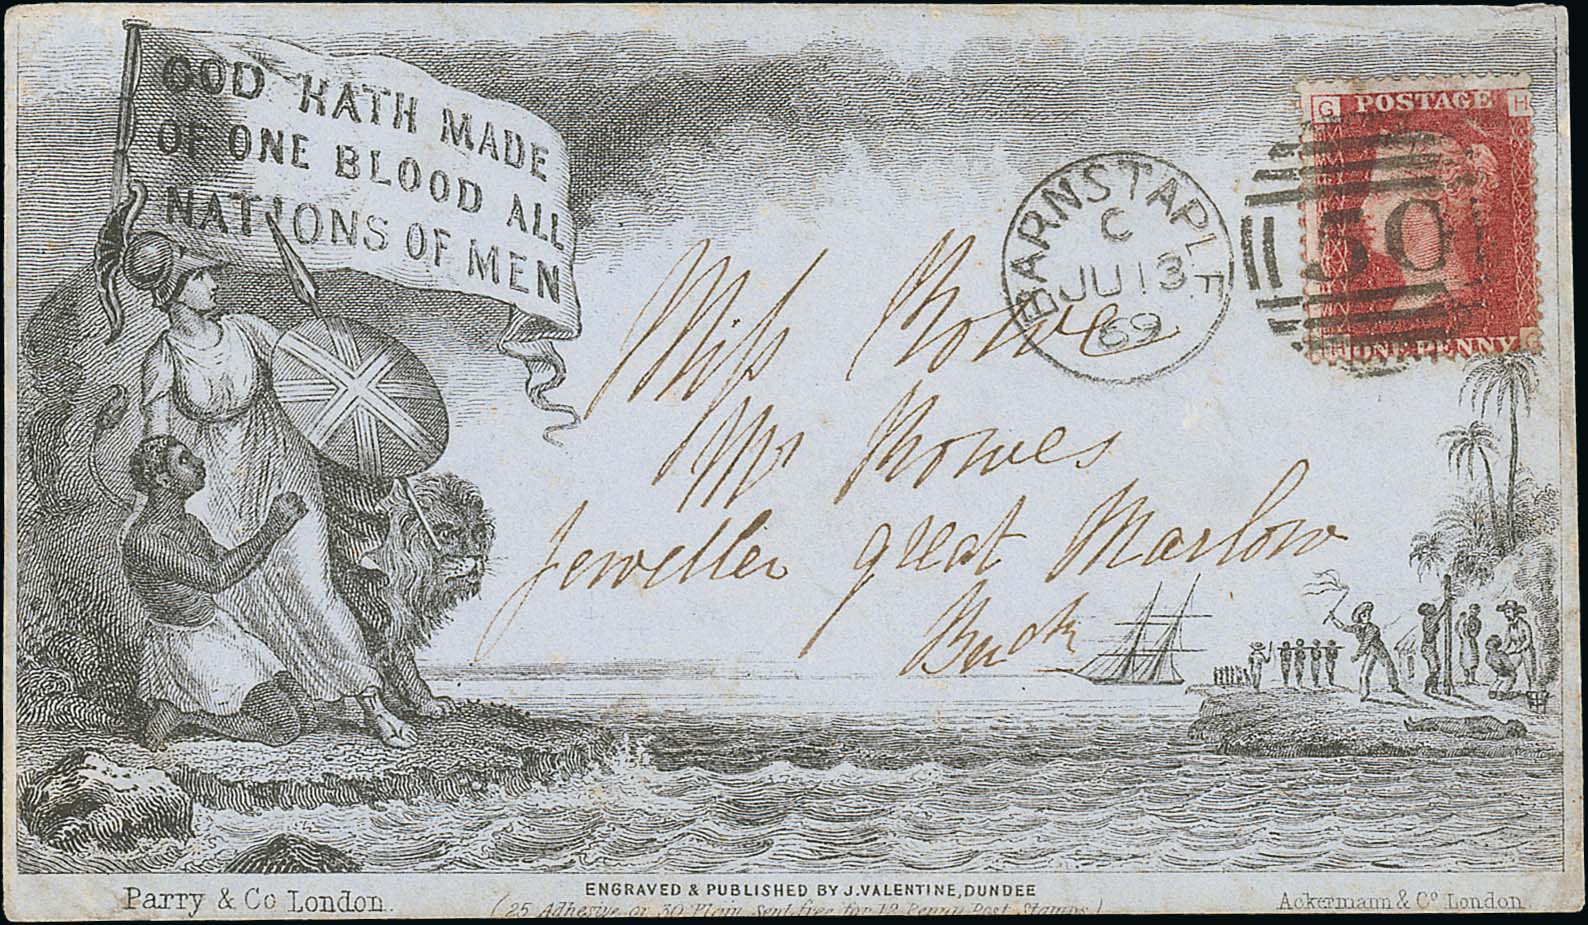 GOD HATH MADE
OF ONE BLOOD ALL
NATIONS OF MEN
G POSTAGE H
BARNSTAPLE
C
JU 13
69
50
H ONE PENNY G
Miss Rowe
Mr Rowes
Jeweller great Marlow
Bucks
ENGRAVED & PUBLISHED BY J. VALENTINE, DUNDEE
Parry & Co London.
(25 Adhesive or 30 Plain sent free for 12 Penny Post Stamps)
Ackermann & Co London.